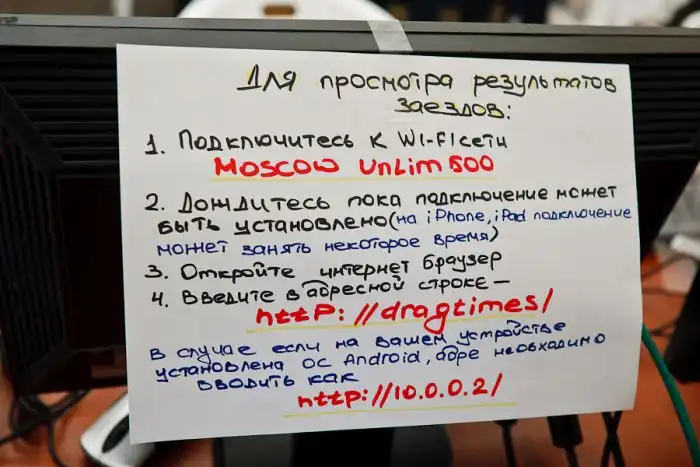 Для просмотра результатов
заездов:
1. Подключитесь к Wi-Fi сети
MOSCOW UnLim 500
2. Дождитесь пока подключение может
быть установлено (на iPhone, iPad подключение
может занять некоторое время)
3. Откройте интернет браузер
4. Введите в адресной строке —
http://dragtimes/
В случае если на вашем устройстве
установлена ОС Android, адре необходимо
вводить как
http://10.0.0.2/